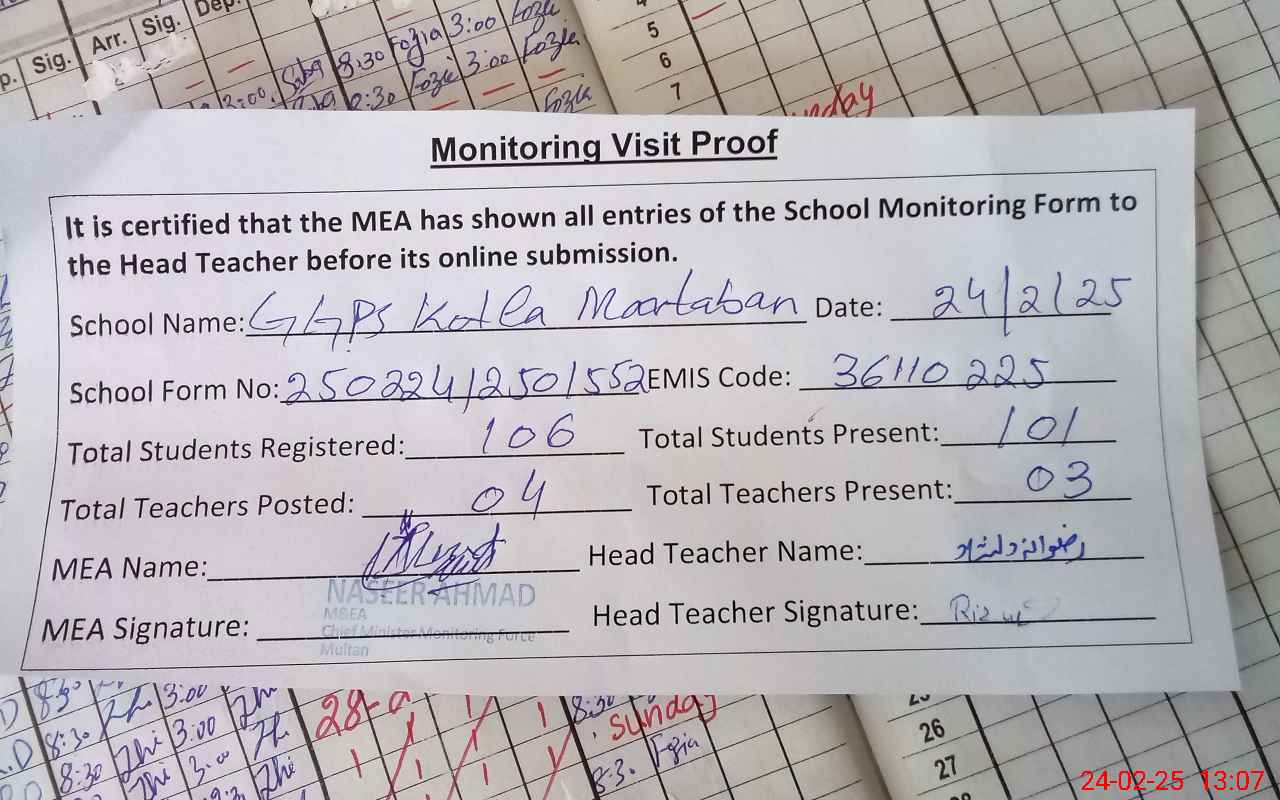 p. Sig. Arr. Sig. Dep.
3:00 Saba 8:30 Fozia 3:00 Fozia
8:30 Fozia 3:00 Fozia
Fozia
5
6
7
Sunday
Monitoring Visit Proof
It is certified that the MEA has shown all entries of the School Monitoring Form to
the Head Teacher before its online submission.
School Name: GGPS Kotla Moartaban Date: 24/2/25
School Form No: 250224/2501552 EMIS Code: 36110225
Total Students Registered: 106 Total Students Present: 101
Total Teachers Posted: 04 Total Teachers Present: 03
MEA Name: Head Teacher Name: رضوانہ دلشاد
NASEER AHMAD
M&EA
MEA Signature: Chief Minister Monitoring Force Head Teacher Signature:
Multan
8:30 3:00 28-a 8:30 Sunday
8:30 3:00
8:30 3:00 8:30 Fozia
26
27
24-02-25 13:07